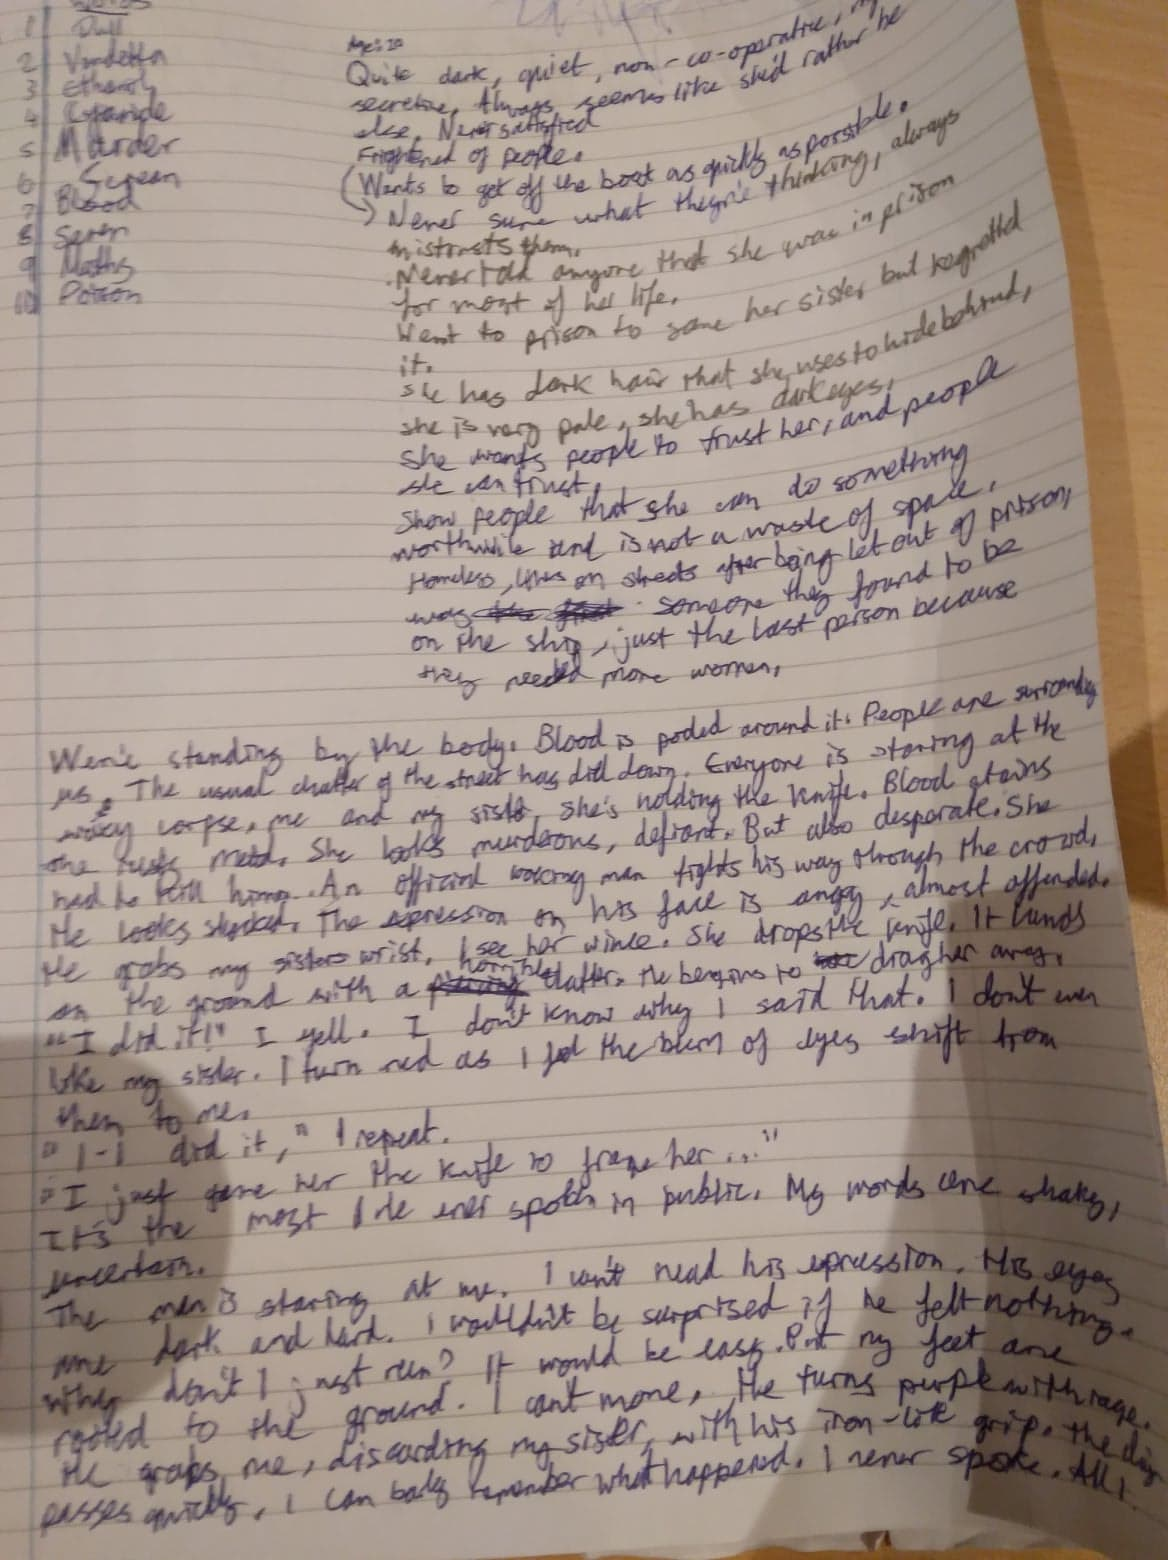 1 Dull
2 Vendetta
3
4 Cyanide
5 Murder
6 Scream
7 Blood
8 Seven
9 Maths
10 Poison
Age: 20
Quite dark, quiet, non-co-operative,
secretive. Always seems like she'd rather be
else. Never satisfied
Frightened of people.
(Wants to get off the boat as quickly as possible.
Never sure what they're thinking, always
mistrusts them.
Never told anyone that she was in prison
for most of her life.
Went to prison to save her sister but regretted
it.
She has dark hair that she uses to hide behind,
she is very pale, she has dark eyes.
She wants people to trust her, and people
she can trust.
Show people that she can do something
worthwhile and is not a waste of space.
Homeless, lives on streets after being let out of prison,
was someone they found to be
on the ship, just the last person because
they needed more women.
We're standing by the body. Blood is pooled around it. People are surrounding
us. The usual chatter of the street has died down. Everyone is staring at the
waxy corpse, me and my sister. She's holding the knife. Blood stains
the rusty metal. She looks murderous, defiant. But also desperate. She
had to kill him. An official looking man fights his way through the crowd.
He looks shocked. The expression on his face is angry, almost offended.
He grabs my sisters wrist. I see her wince. She drops the knife. It lands
on the ground with a horrible clatter. He begins to drag her away.
"I did it!" I yell. I don't know why I said that. I don't even
like my sister. I turn red as I feel the burn of eyes shift from
them to me.
"I-I did it," I repeat.
"I just gave her the knife to frame her..."
It's the most I've ever spoken in public. My words are shaky,
uncertain.
The man is staring at me. I can't read his epression. His eyes
are dark and hard. I wouldn't be surprised if he felt nothing.
Why don't I just run? It would be easy. But my feet are
rooted to the ground. I can't move. He turns purple with rage.
He grabs me, discarding my sister, with his iron-like grip. The day
passes quickly. I can barely remember what happened. I never spoke. All I